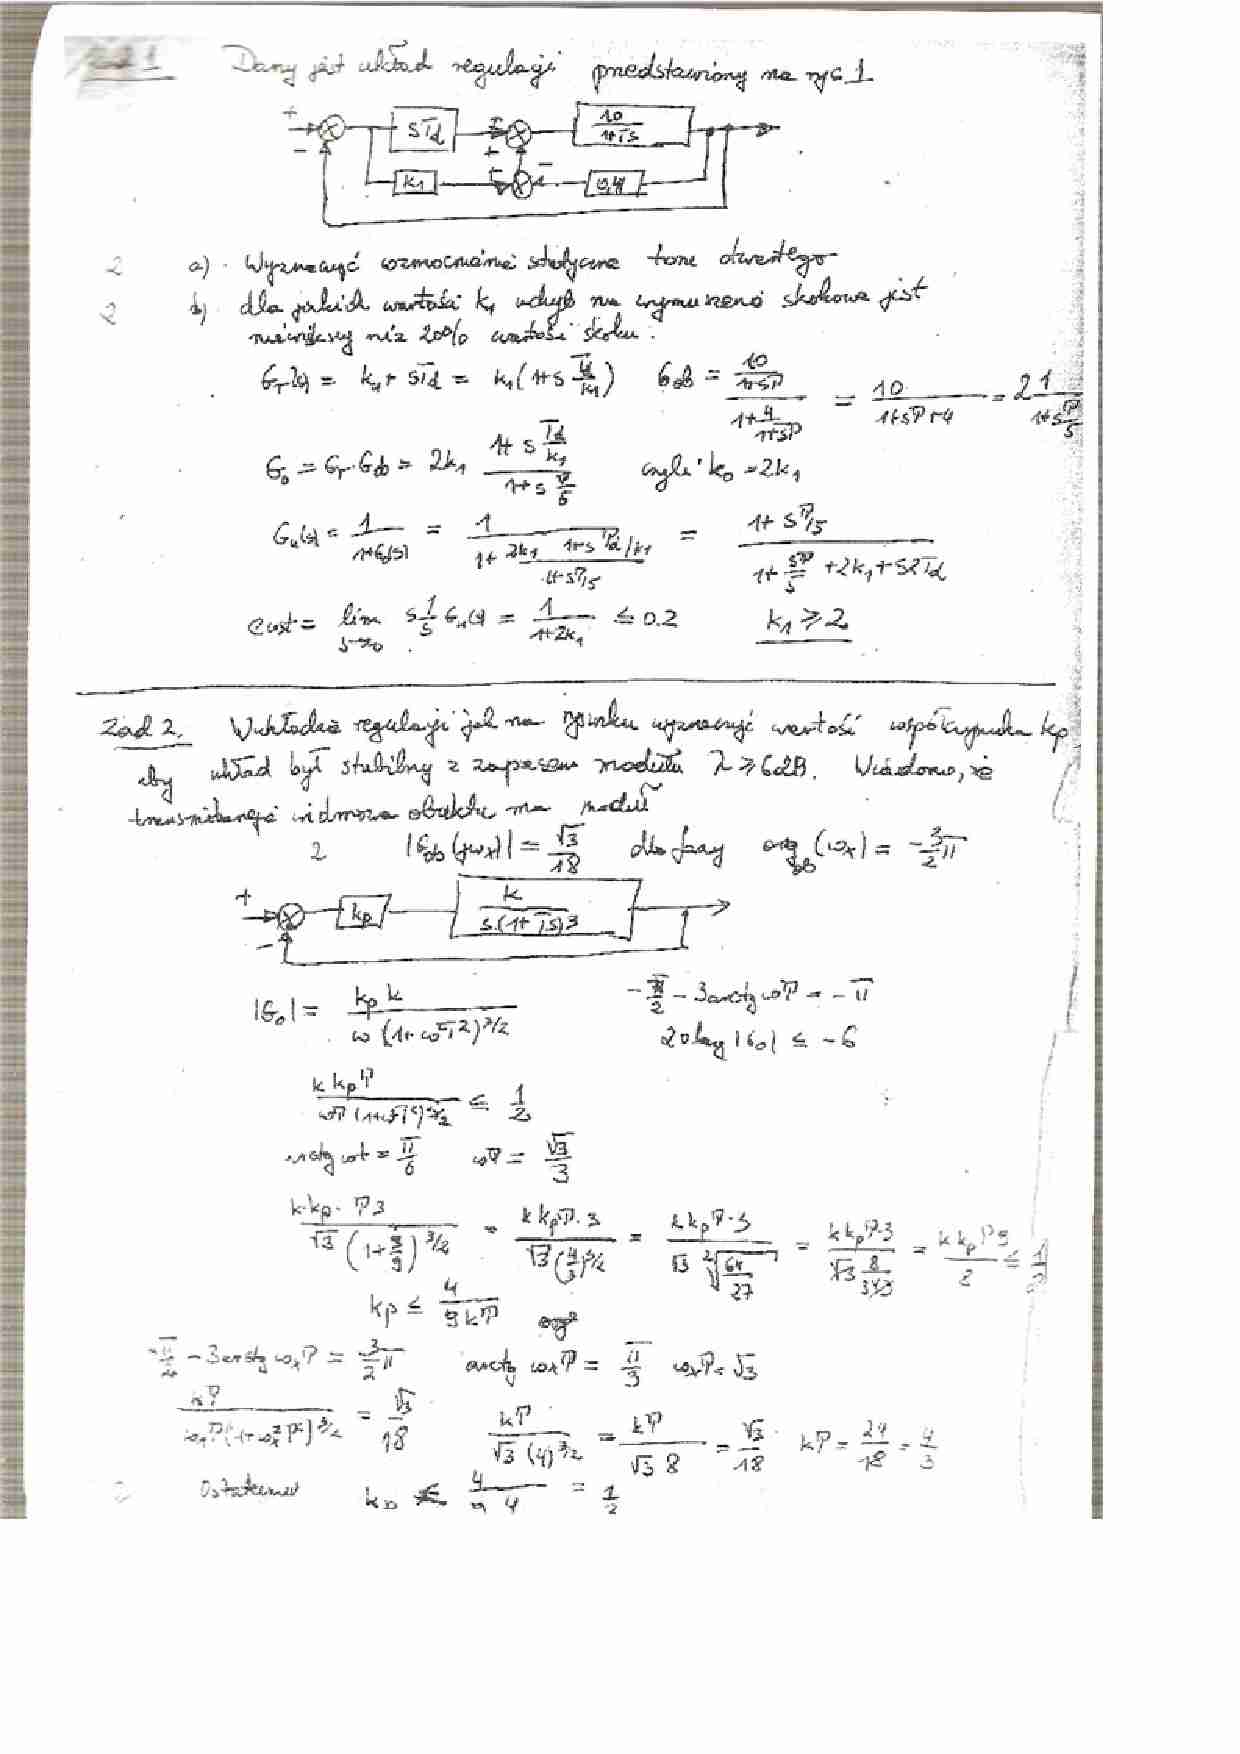 Zad 1 Dany jest układ regulacji przedstawiony na rys 1
+ - sTd + + 10/(1+Ts)
k1 + - 0,4
2 a). Wyznaczyć wzmocnienie statyczne toru otwartego
2 b) dla jakich wartości k1 uchyb na wymuszenie skokowe jest
niewiększy niż 20% wartości skoku.
GT(s) = k1 + sTd = k1(1+s Td/k1) Gob = (10/(1+sT))/(1+4/(1+sT)) = 10/(1+sT+4) = 2 1/(1+s T/5)
Go = GT·Gob = 2k1 (1+s Td/k1)/(1+s T/5) czyli ko = 2k1
Gu(s) = 1/(1+Go(s)) = 1/(1+ 2k1 (1+s Td/k1)/(1+sT/5)) = (1+sT/5)/(1+ sT/5 +2k1+s2Td)
eust = lim s→0 s 1/s Gu(s) = 1/(1+2k1) ≤ 0.2 k1 ≥ 2
Zad 2. W układzie regulacji jak na rysunku wyznaczyć wartość współczynnika kp
aby układ był stabilny z zapasem modułu λ ≥ 6dB. Wiadomo, że
transmitancja widmowa obiektu ma moduł
2 |Gob(jωx)| = √3/18 dla fazy argob(ωx) = -3/2 π
+ - kp k/(s(1+Ts)3)
|Go| = kp k/(ω(1+ω²T²)^3/2) -π/2 - 3arctg ωT = -π
20 log |Go| ≤ -6
k kp T/(ωT(1+ω²T²)^3/2) ≤ 1/2
arctg ωt = π/6 ωT = √3/3
k·kp·T3/(√3(1+3/9)^3/2) = k kpT·3/(√3(4/3)^3/2) = k kpT·3/(√3 ²√(64/27)) = k kpT·3/(√3 8/(3√3)) = k kp T9/8 ≤ 1/2
kp ≤ 4/(9kT)
-π/2 - 3arctg ωxT = 3/2 π arctg ωxT = π/3 ωxT = √3
kT/(ωxT(1+ωx²T²)^3/2) = √3/18 kT/(√3 (4)^3/2) = kT/(√3 8) = √3/18 kT = 24/18 = 4/3
Ostatecznie